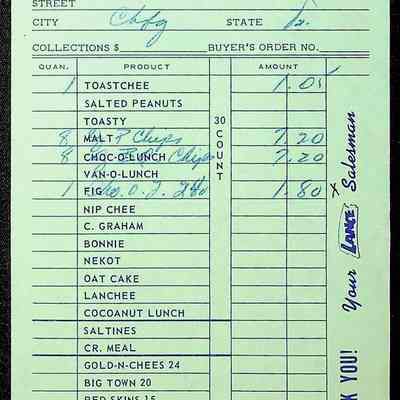 STREET
CITY Chfg STATE Va.
COLLECTIONS $ BUYER'S ORDER NO.
QUAN. PRODUCT AMOUNT
1 TOASTCHEE 1.05
SALTED PEANUTS
TOASTY
8 MALT P Chips 7.20
8 CHOC-O-LUNCH Chips 7.20
VAN-O-LUNCH
1 FIG 1.80 X
NIP CHEE
C. GRAHAM
BONNIE
NEKOT
OAT CAKE
LANCHEE
COCOANUT LUNCH
SALTINES
CR. MEAL
GOLD-N-CHEES 24
BIG TOWN 20
RED SKINS 15
30 COUNT
K YOU! Your LANCE Salesman